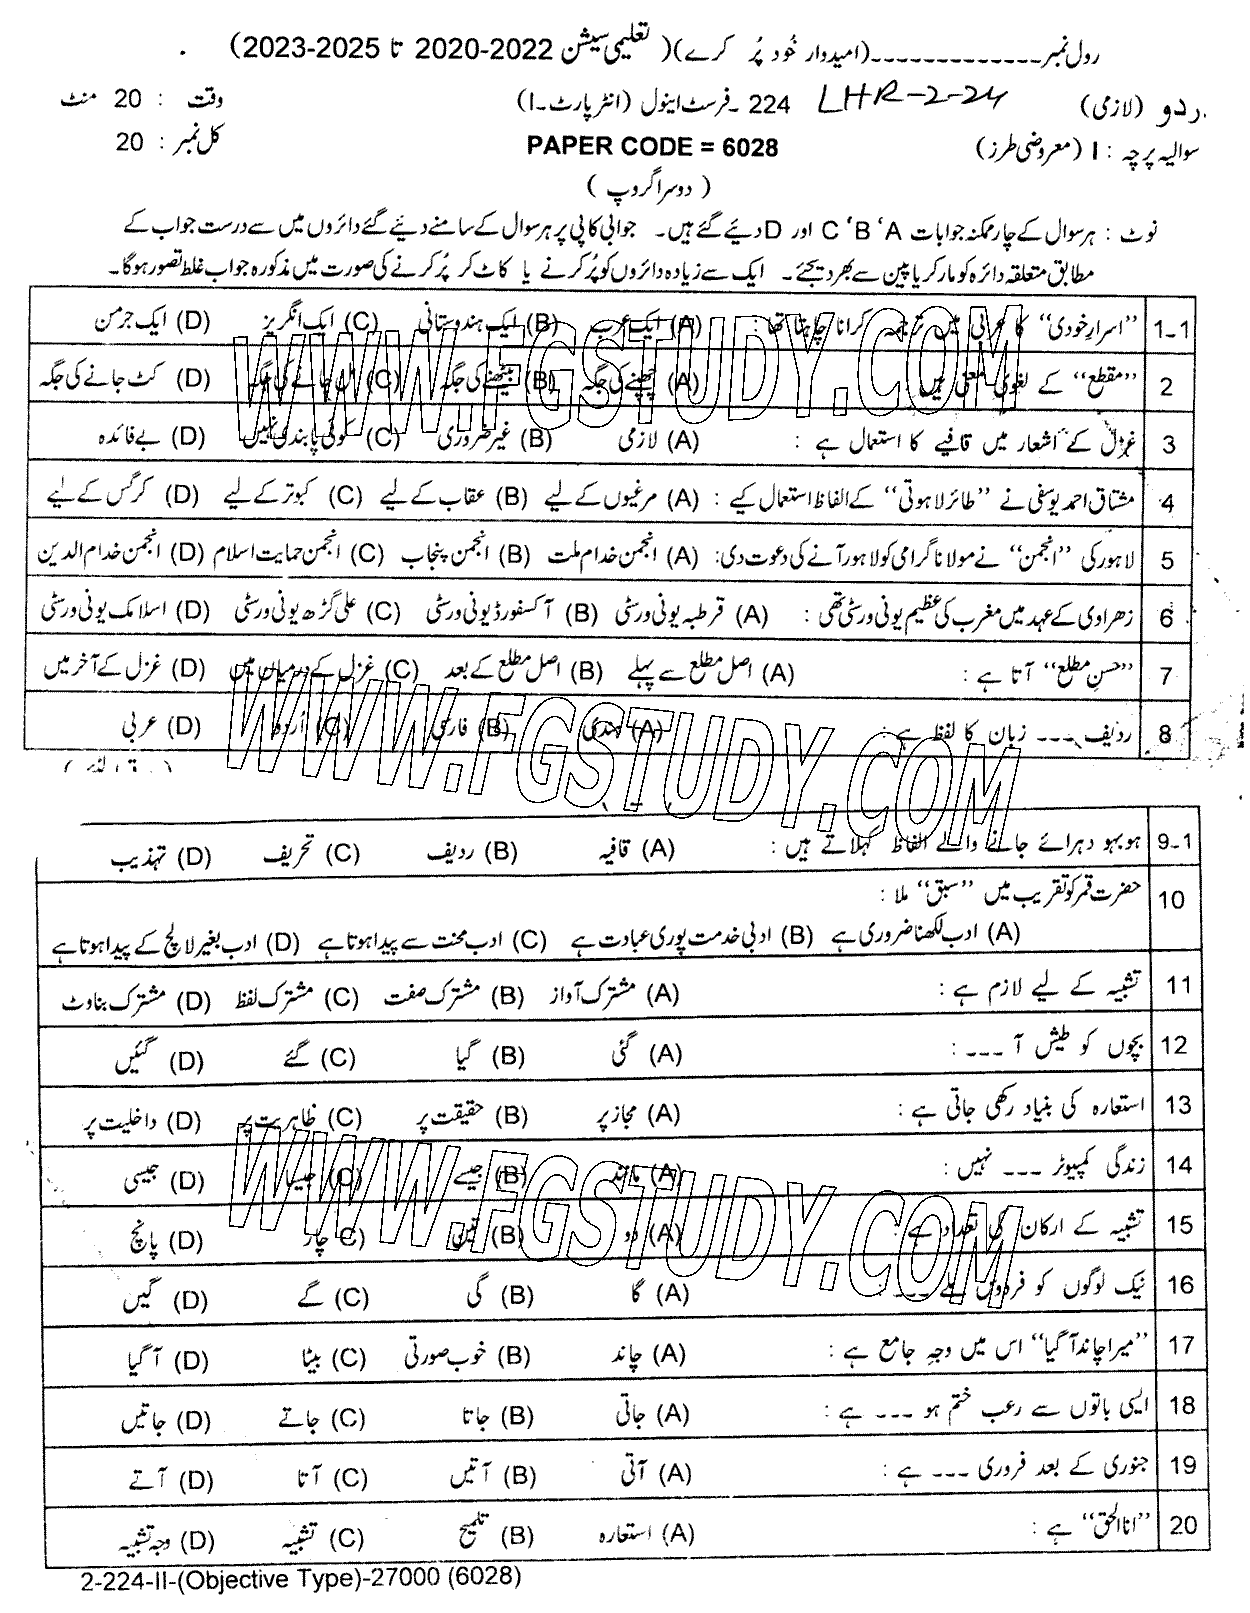 رول نمبر-------------(امیدوار خُود پُر کرے)( تعلیمی سیشن 2022-2020 تا 2025-2023)
اردو (لازمی) LHR-2-24 224 ۔فرسٹ اینول (انٹر پارٹ۔I) وقت : 20 منٹ
سوالیہ پرچہ : I (معروضی طرز) PAPER CODE = 6028 کل نمبر : 20
( دوسرا گروپ )
نوٹ : ہر سوال کے چار ممکنہ جوابات A ‘B ‘C اور D دئیے گئے ہیں۔ جوابی کاپی پر ہر سوال کے سامنے دئیے گئے دائروں میں سے درست جواب کے
مطابق متعلقہ دائرہ کو مارکر یا پین سے بھر دیجئے۔ ایک سے زیادہ دائروں کو پُر کرنے یا کاٹ کر پُر کرنے کی صورت میں مذکورہ جواب غلط تصور ہوگا۔
1۔1 ’’اسرارِ خودی‘‘ کا میں ترجمہ کرانا چاہتا تھا : (A) ایک عرب (B) ایک ہندوستانی (C) ایک انگریز (D) ایک جرمن
2 ’’مقطع‘‘ کے لغوی معنی ہیں (A) چھپنے کی جگہ (B) بیٹھنے کی جگہ (C) جانے کی جگہ (D) کٹ جانے کی جگہ
3 غزل کے اشعار میں قافیے کا استعمال ہے : (A) لازمی (B) غیر ضروری (C) کوئی پابندی نہیں (D) بے فائدہ
4 مشتاق احمد یوسفی نے ’’طائر لاہوتی‘‘ کے الفاظ استعمال کیے : (A) مرغیوں کے لیے (B) عقاب کے لیے (C) کبوتر کے لیے (D) کرگس کے لیے
5 لاہور کی ’’انجمن‘‘ نے مولانا گرامی کو لاہور آنے کی دعوت دی: (A) انجمن خدام ملت (B) انجمن پنجاب (C) انجمن حمایت اسلام (D) انجمن خدام الدین
6 زھراوی کے عہد میں مغرب کی عظیم یونی ورسٹی تھی : (A) قرطبہ یونی ورسٹی (B) آکسفورڈ یونی ورسٹی (C) علی گڑھ یونی ورسٹی (D) اسلامک یونی ورسٹی
7 ’’حسنِ مطلع‘‘ آتا ہے : (A) اصل مطلع سے پہلے (B) اصل مطلع کے بعد (C) غزل کے درمیان میں (D) غزل کے آخر میں
8 ردیف --- زبان کا لفظ ہے : (A) ہندی (B) فارسی (C) اردو (D) عربی
9۔1 ہو بہو دہرائے جانے والے الفاظ کہلاتے ہیں : (A) قافیہ (B) ردیف (C) تحریف (D) تہذیب
10 حضرت قمر کو تقریب میں ’’سبق‘‘ ملا :
(A) ادب لکھنا ضروری ہے (B) ادبی خدمت پوری عبادت ہے (C) ادب محنت سے پیدا ہوتا ہے (D) ادب بغیر لالچ کے پیدا ہوتا ہے
11 تشبیہ کے لیے لازم ہے : (A) مشترک آواز (B) مشترک صفت (C) مشترک لفظ (D) مشترک بناوٹ
12 بچوں کو طیش آ --- : (A) گئی (B) گیا (C) گئے (D) گئیں
13 استعارہ کی بنیاد رکھی جاتی ہے : (A) مجاز پر (B) حقیقت پر (C) ظاہریت پر (D) داخلیت پر
14 زندگی کمپیوٹر --- نہیں : (A) مانند (B) جیسے (C) جیسا (D) جیسی
15 تشبیہ کے ارکان کی تعداد ہے : (A) دو (B) تین (C) چار (D) پانچ
16 نیک لوگوں کو فردوس ملے --- (A) گا (B) گی (C) گے (D) گیں
17 ’’میرا چاند آگیا‘‘ اس میں وجہِ جامع ہے : (A) چاند (B) خوب صورتی (C) بیٹا (D) آگیا
18 ایسی باتوں سے رعب ختم ہو --- ہے : (A) جاتی (B) جاتا (C) جاتے (D) جاتیں
19 جنوری کے بعد فروری --- ہے : (A) آتی (B) آتیں (C) آتا (D) آتے
20 ’’انا الحق‘‘ ہے : (A) استعارہ (B) تلمیح (C) تشبیہ (D) وجہ تشبیہ
2-224-II-(Objective Type)-27000 (6028)
WWW.FGSTUDY.COM
WWW.FGSTUDY.COM
WWW.FGSTUDY.COM